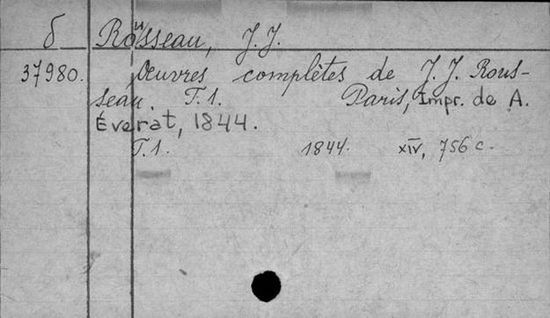 б Rousseau, J. J.
37980. Oeuvres complètes de J. J. Rous-
seau. T. 1. Paris, Impr. de A.
Éverat, 1844.
T. 1. 1844. XIV, 756 c.